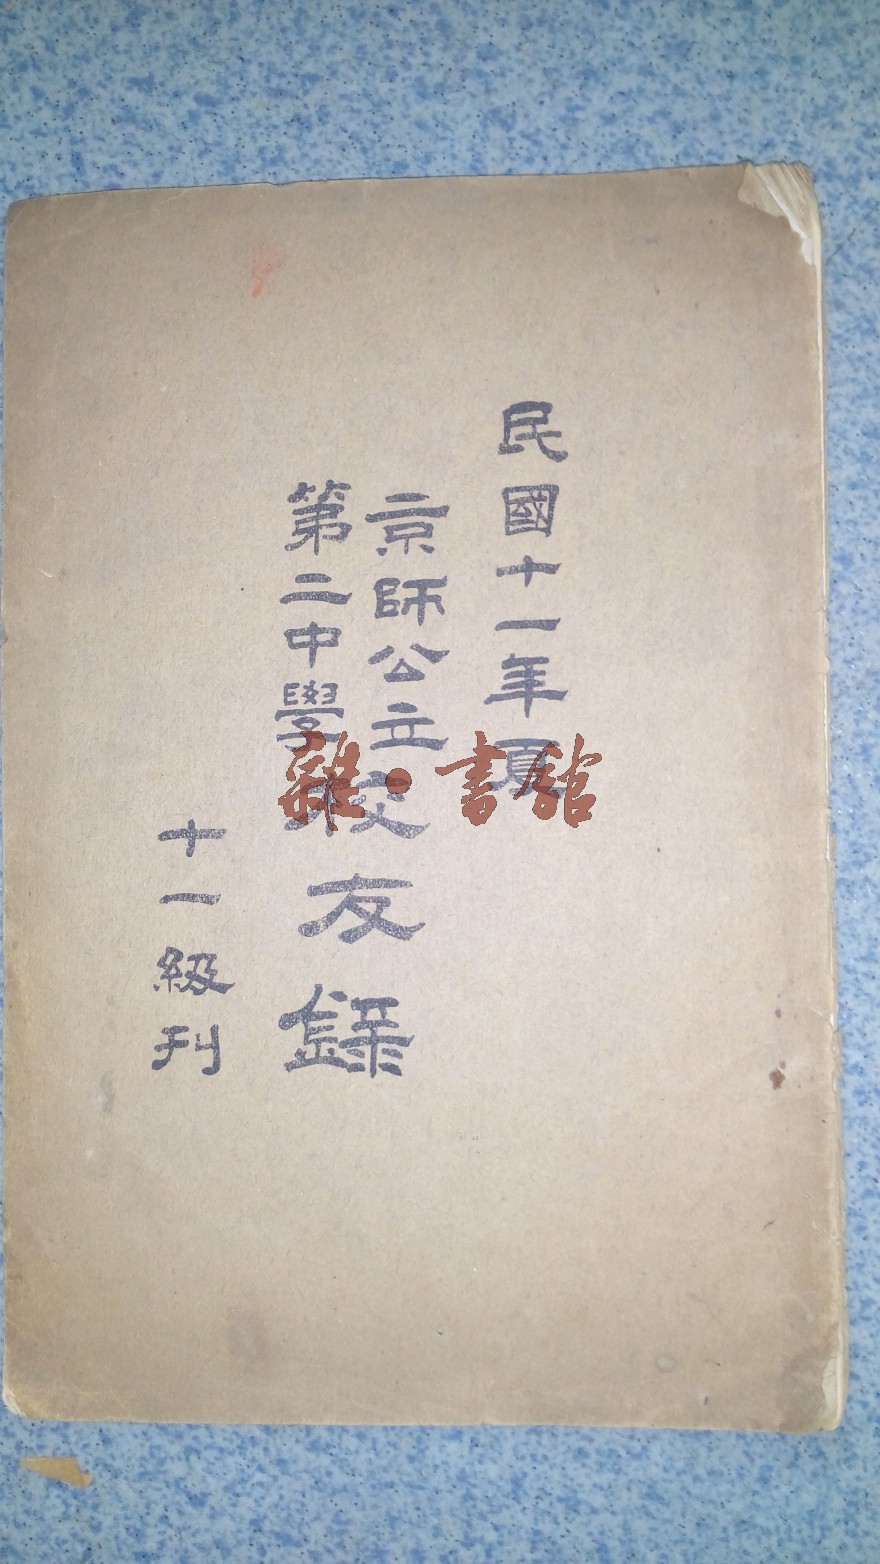 民國十一年夏
京師公立
第二中學
校友錄
十一級刊
雜·書館